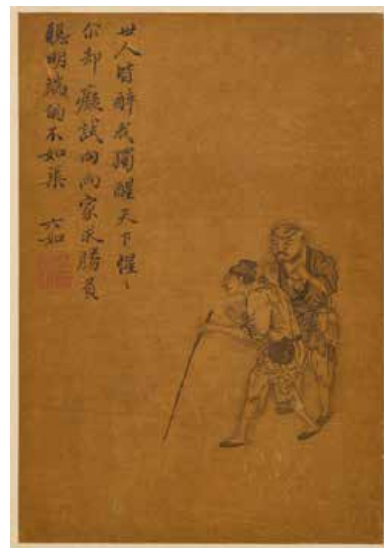 世人皆醉我獨醒天下惺〻
尒却癡試向両家求勝負
聰明端的不如渠 六如